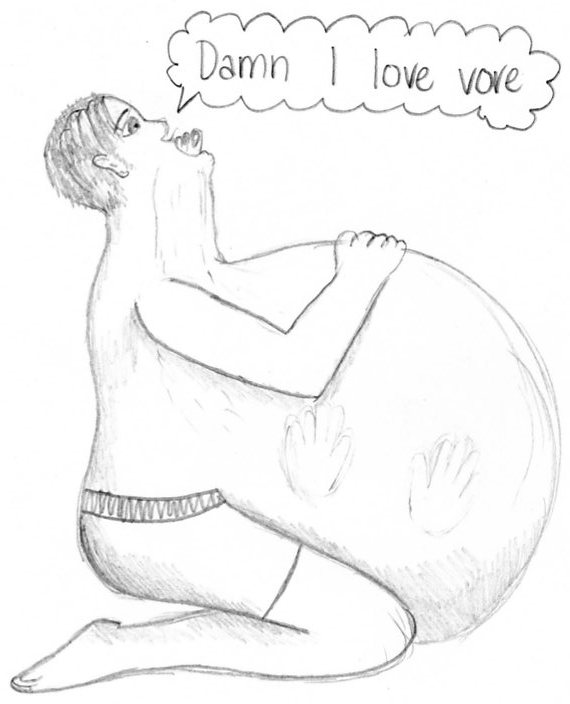 Damn I love vore